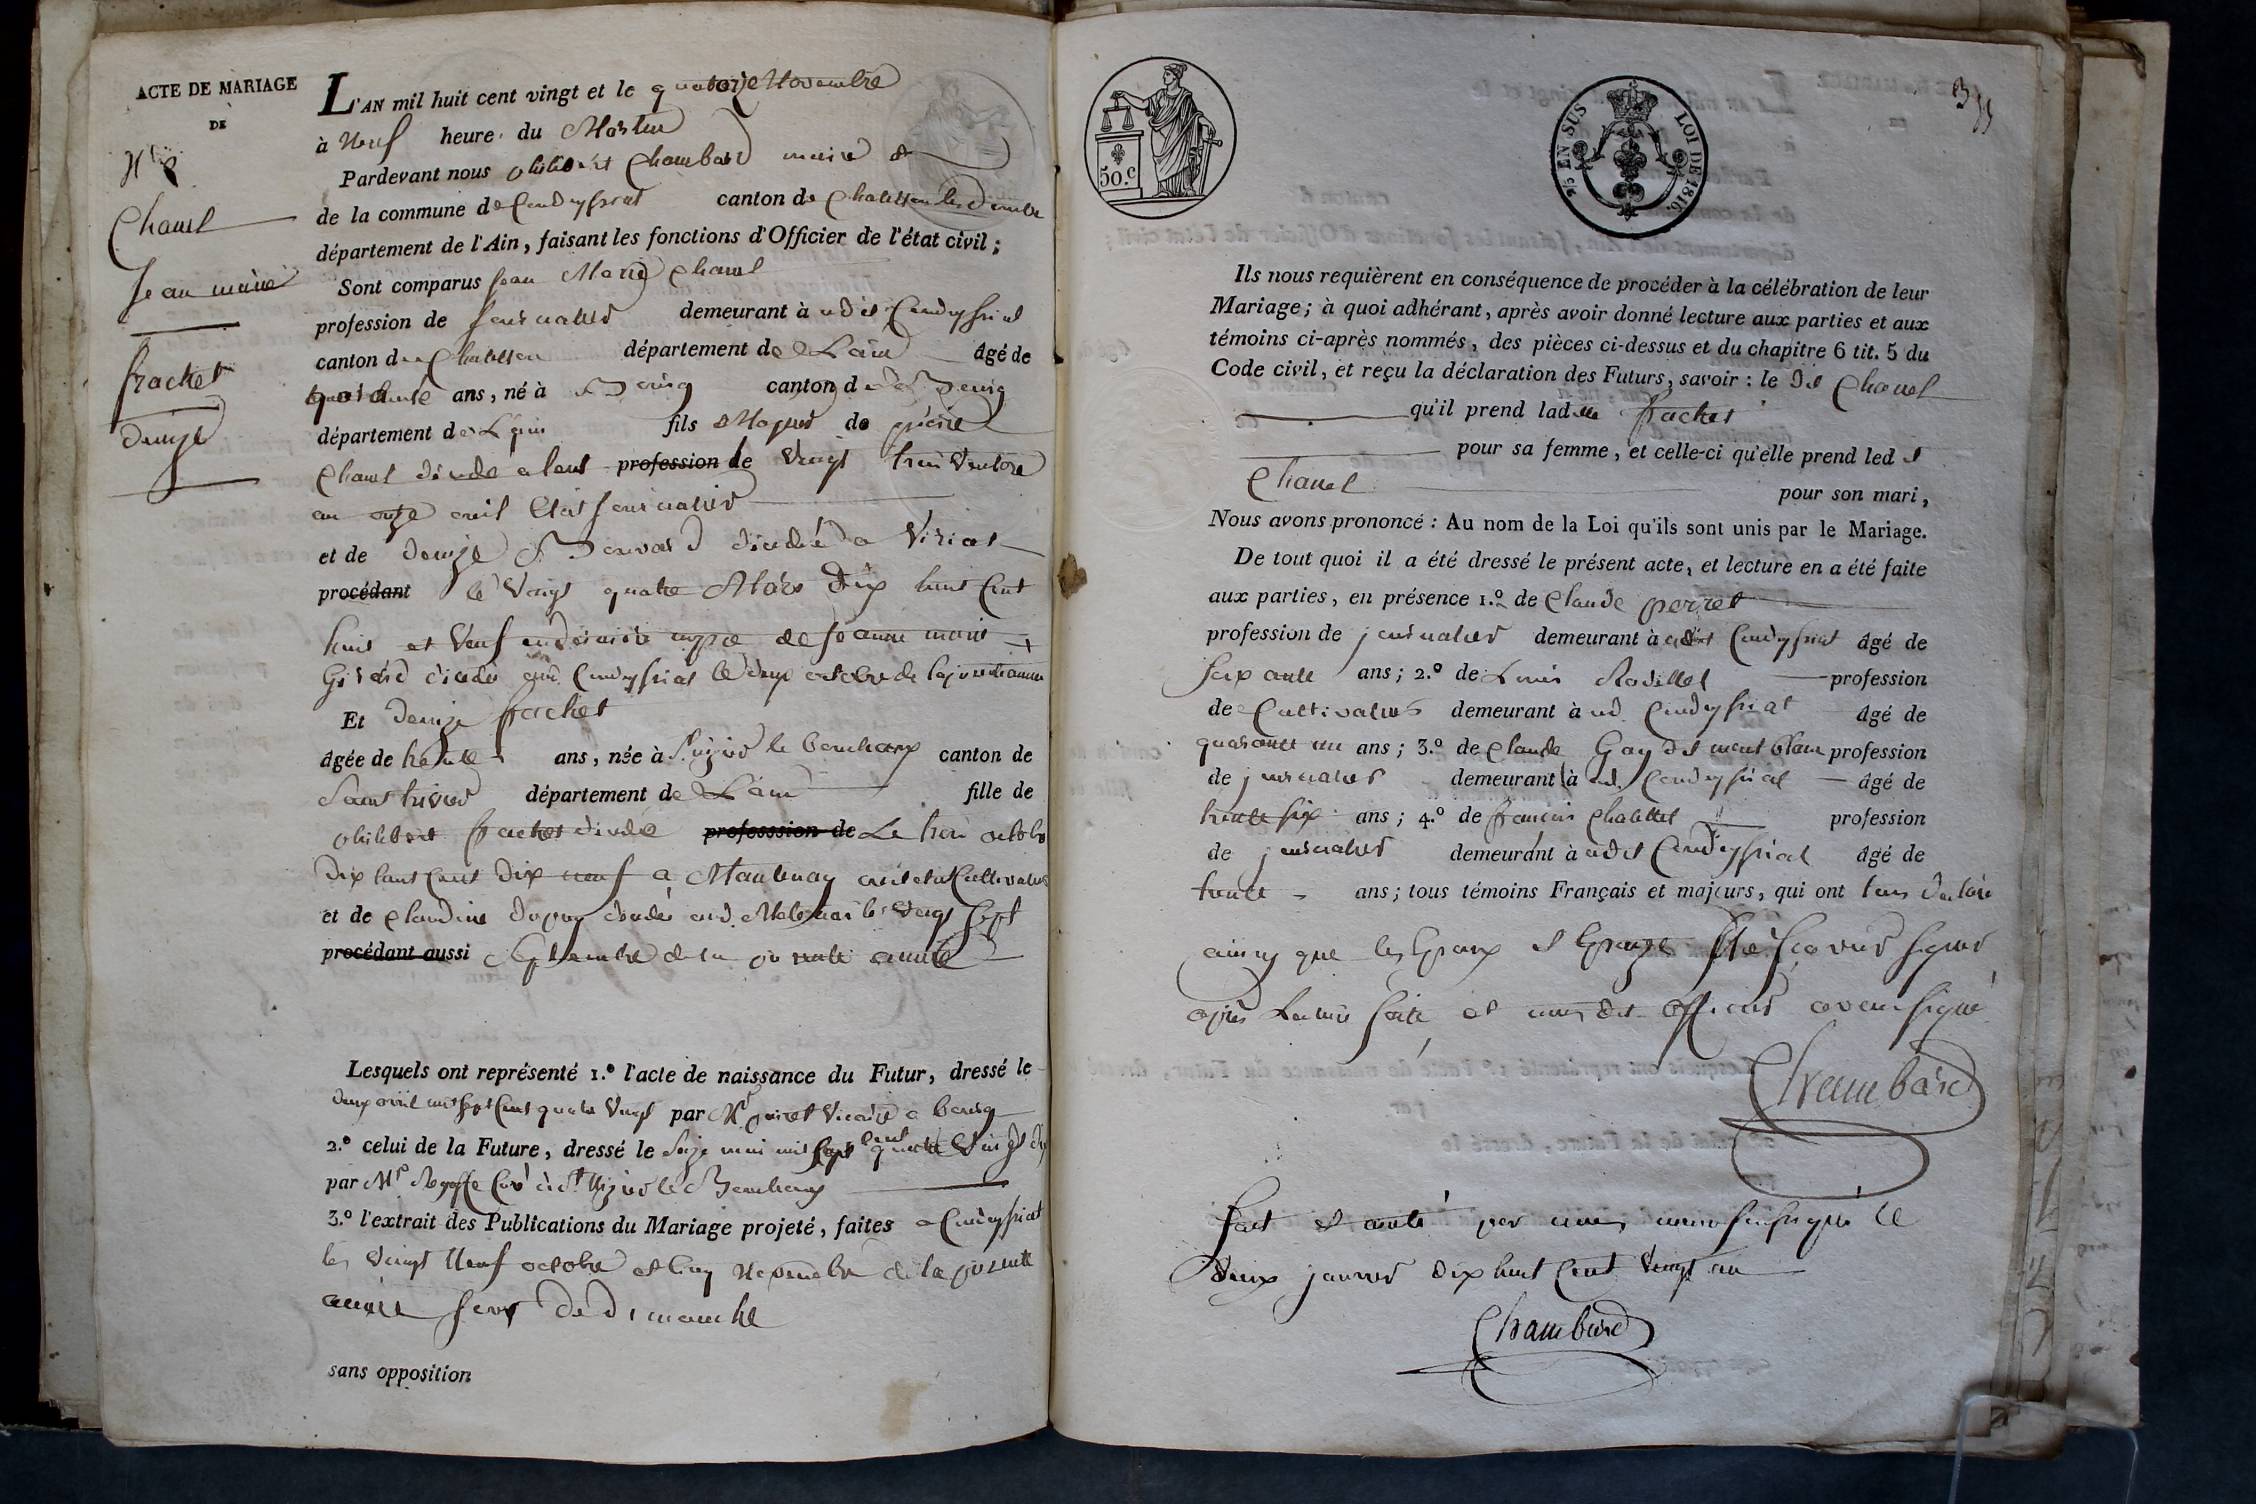 ACTE DE MARIAGE
DE
N.º 8
Chanel
Jean marie
frachet
denize
L'AN mil huit cent vingt et le quatorze Novembre
à Neuf heure du Matin
Pardevant nous philibert Chambard maire
de la commune de Condeyssiat canton de Chatillon les Dombe
département de l'Ain, faisant les fonctions d'Officier de l'état civil;
Sont comparus Jean Marie Chanel
profession de Journalier demeurant à udit Condeyssiat
canton de Chatillon département de L'ain âgé de
quarante ans, né à Bourg canton de Bourg
département de L'ain fils Majeur de pierre
Chanel décédé a profession de Vingt trois Ventose
an onze avril était Journalier
et de denize Bernard décédée a Viriat
procédant le Vingt quatre Mars dix huit Cent
huit et Veuf en dernière de Jeanne marie
Girard décédée aud. Condeyssiat le deux octobre de la présente année
Et denize frachet
âgée de trente ans, née à St. le bouchoux canton de
Saint trivier département de L'ain fille de
philibert frachet décédé professsion de Le trois octobre
dix huit Cent dix neuf a Mantenay était Cultivateur
et de Claudine dupuy décédée aud. les Vingt Sept
procédant aussi Septembre de la présente année
Lesquels ont représenté 1.º l'acte de naissance du Futur, dressé le
deux avril mil sept Cent quatre Vingt par Mr. Vicaire a bourg
2.º celui de la Future, dressé le Seize mai mil sept cent quatre Vingt dix
par Mr. Curé à St. le Bouchoux
3.º l'extrait des Publications du Mariage projeté, faites a Condeyssiat
les Vingt Neuf octobre et Cinq Novembre de la présente
année jours de dimanche
sans opposition
50.C
2/5 EN SUS LOI DE 1816.
Ils nous requièrent en conséquence de procéder à la célébration de leur
Mariage; à quoi adhérant, après avoir donné lecture aux parties et aux
témoins ci-après nommés, des pièces ci-dessus et du chapitre 6 tit. 5 du
Code civil, et reçu la déclaration des Futurs, savoir: le dit Chanel
qu'il prend ladite frachet
pour sa femme, et celle-ci qu'elle prend led t
Chanel pour son mari,
Nous avons prononcé: Au nom de la Loi qu'ils sont unis par le Mariage.
De tout quoi il a été dressé le présent acte, et lecture en a été faite
aux parties, en présence 1.º de Claude perret
profession de journalier demeurant à udit Condeyssiat âgé de
soixante ans; 2.º de Louis Rodillet profession
de Cultivateur demeurant à ud. Condeyssiat âgé de
quarante un ans; 3.º de Claude Gay dit mont blanc profession
de journalier demeurant à ud. Condeyssiat âgé de
trente six ans; 4.º de françois Chatillet profession
de journalier demeurant à udit Condeyssiat âgé de
trente ans; tous témoins Français et majeurs, qui ont tous déclaré
ainsy que les Epoux et Epouze ne Sçavoir signer
après Lecture faite et nous dit officier avons signé
Chambard
fait et arrêté par nous maire soussigné le
deux janvier dix huit Cent vingt un
Chambard